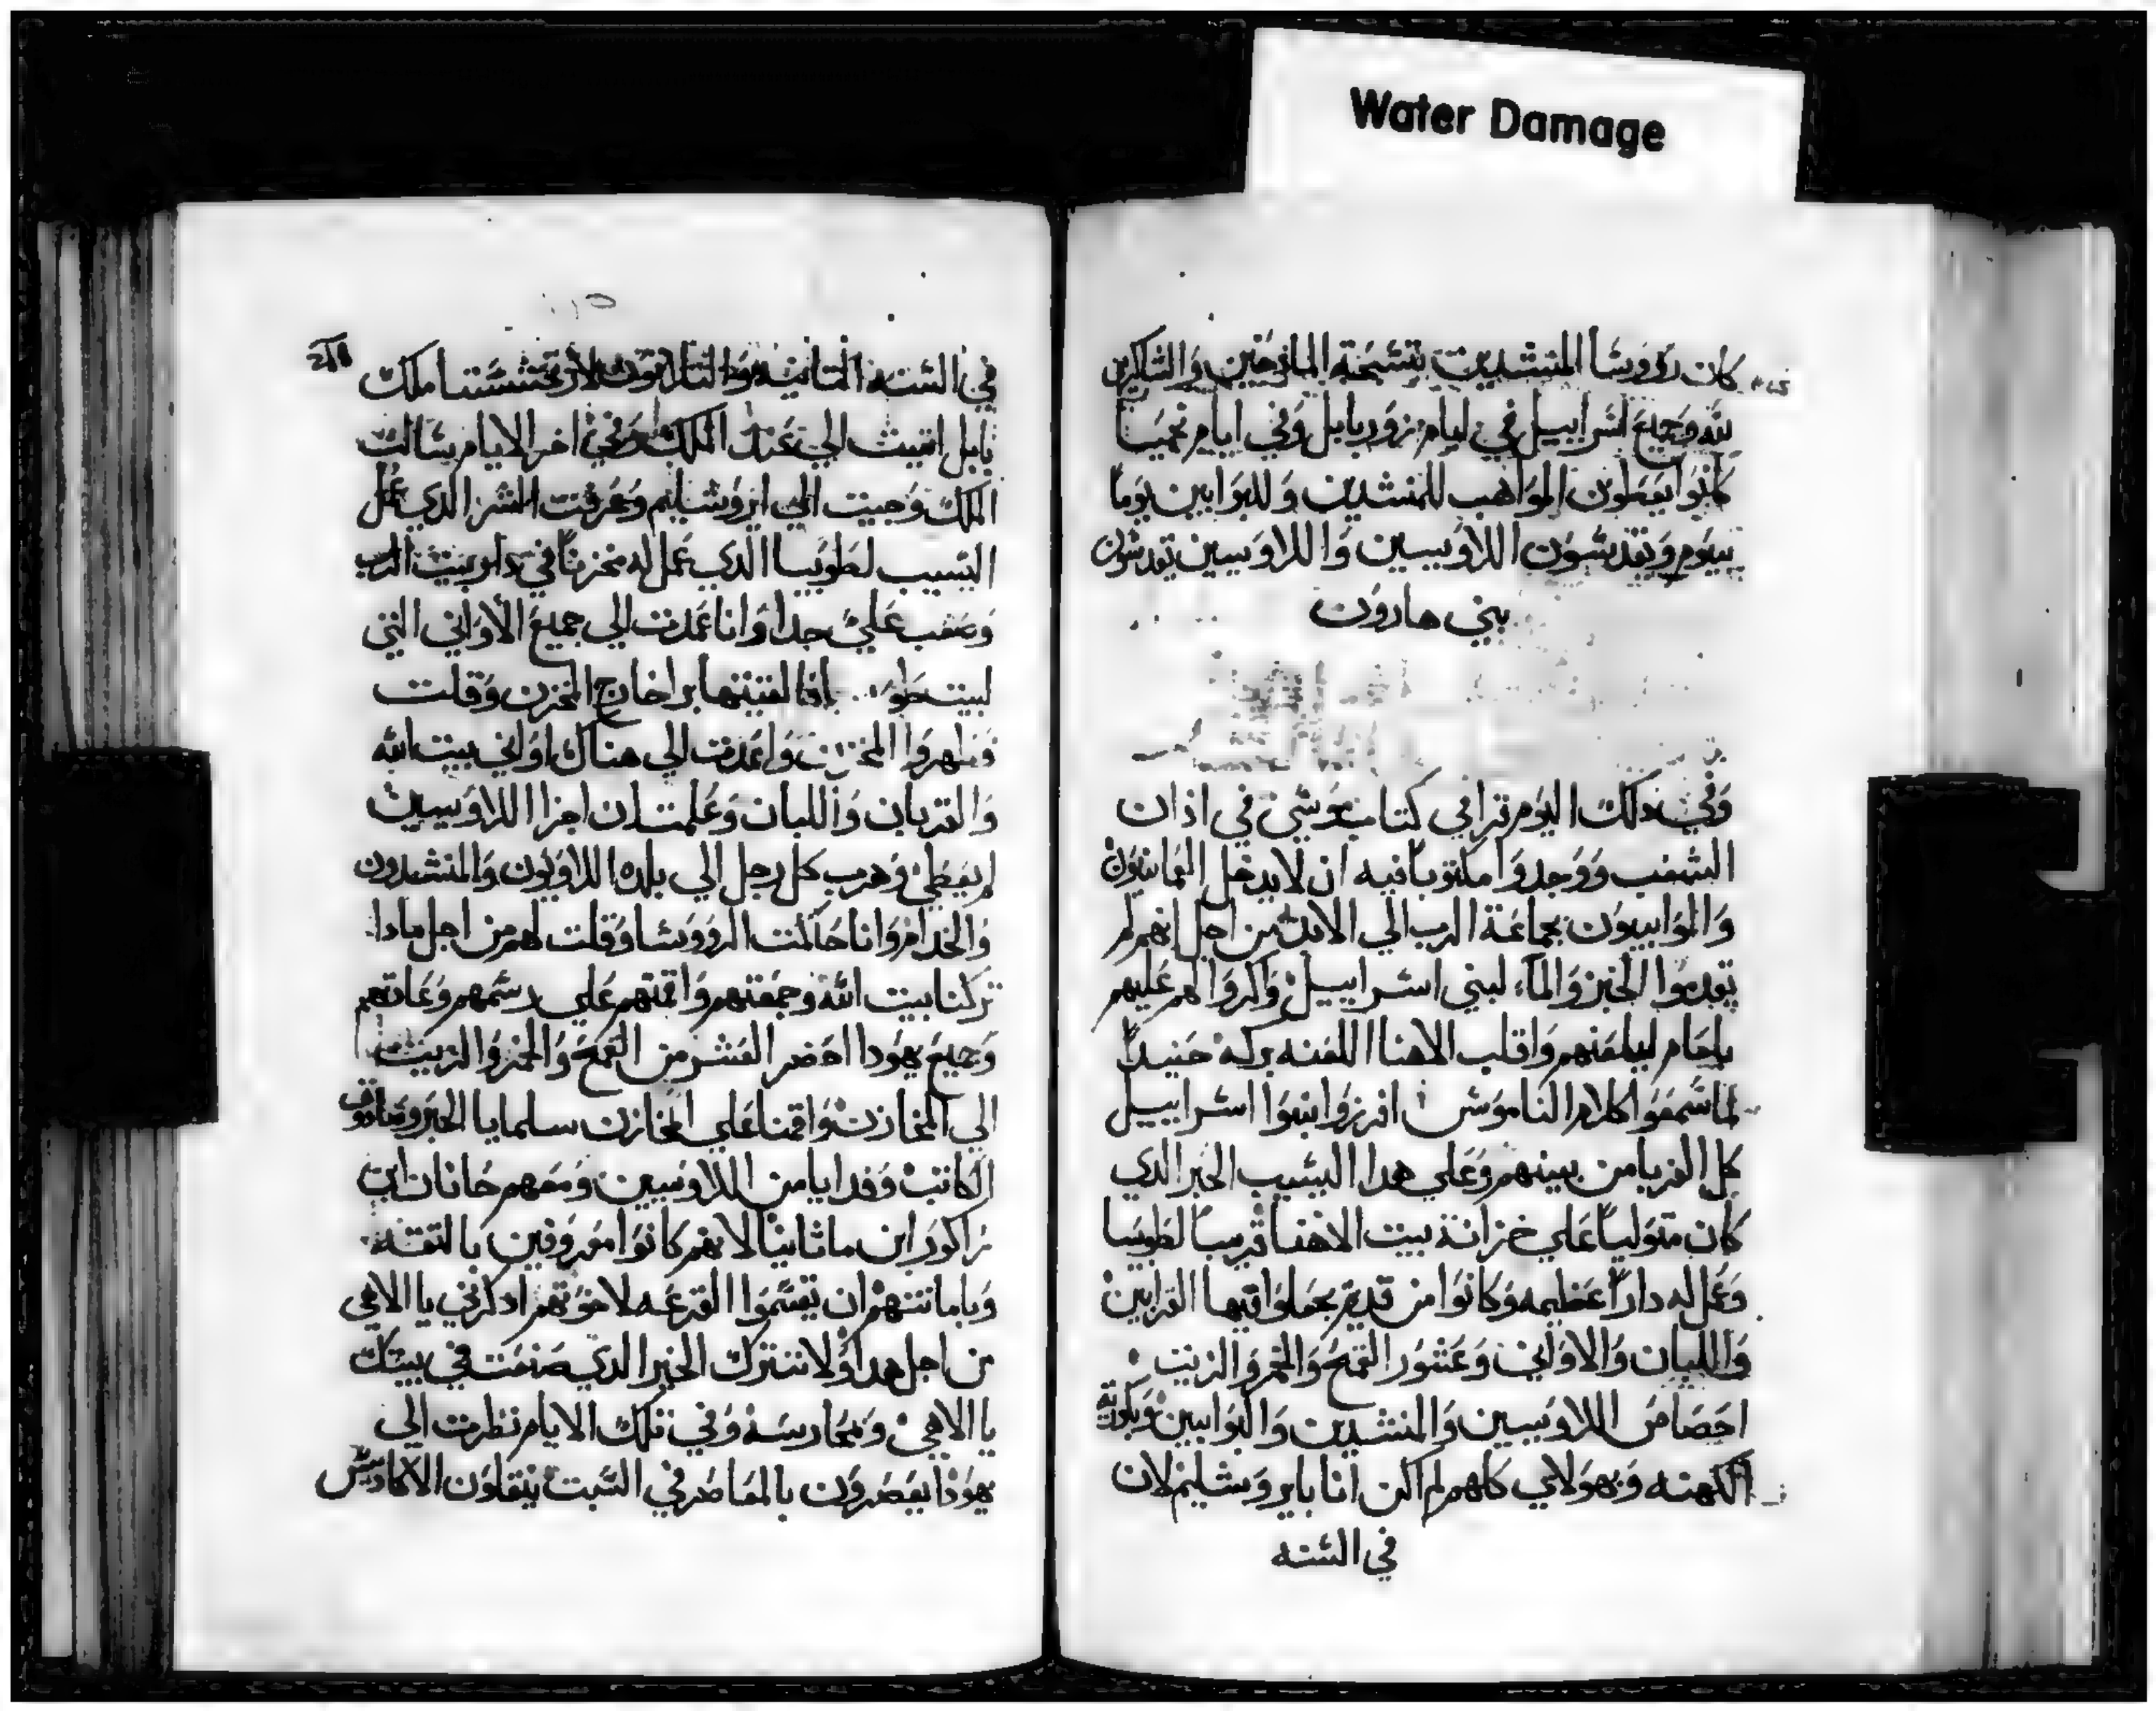 Water Damage
كان رووسا المنشدين بتسبحة المادحين والشاكرين
لله وجميع اسرابييل في ايام زوربابل وفي ايام نحميا
كانوا يعطون المواهب للمنشدين وللبوابين يوماً
بيوم ويقدسون اللاويين واللاويين يقدسون
بني هارون
وفي ذلك اليوم قرا في كتاب موسي في اذان
الشعب ووجدوا مكتوباً فيه ان لا يدخل العمانيون
والموابيون بجماعة الرب الي الابد من اجل انهم لم
يقدموا الخبز والماء لبني اسرابييل واكروا لهم عليهم
بلعام ليلعنهم واقلب الاهنا اللعنه بركه حنيداً
لما سمعوا كلام الناموس افرزوا ابنوا اسرابييل
كل الغربا من بينهم وعلي هدا السبب الحبر الدي
كان متولياً علي خزانة بيت الاهنا قريباً لطوبيا
وعمل له داراً عظيمه وكانوا من قديم يجعلوا فيها القرابين
واللبان والاواني وعشور القمح والخمر والزيت
احصا من اللاويين والمنشدين والبوابين وبكورية
الكهنه وبهولاي كلهم لم اكن انا بايروشليم لان
في السنه
في السنه التانيه والتلاتون لارتحششتا ملك
بابل اتيت الي عند الملك وفي اخر الايام سالت
الملك وجيت الي ايروشليم وعرفت الشر الدي عمل
السبب لطوبيا الدي عمل له مخزناً في دار بيت الرب
وصعب علي جدا وانا عمدت الي جميع الاواني التي
لبيت القيتها برا خارج المخزن وقلت
فطهروا واعدت الي هناك اواني بيت الله
والقربان واللبان وعلمت ان اجزا اللاويين
لم يعطي وهرب كل رجل الي بلده اللاويون والمنشدون
والخدام وانا حاكمت الرووسا وقلت لهم من اجل مادا
تركنا بيت الله وجمعتهم واقمتهم علي رسمهم وعادتهم
وجميع يهودا احضر العشر من القمح والخمر والزيت
الي المخازن واقمنا علي المخازن سلمايا الحبر وصادوق
الكاتب وفدايا من اللاويين ومعهم حانان ابن
زاكور ابن ماتانيا لانهم كانوا معروفين بالتقه
وبامانتهم ان يقسموا القرعه لاخوتهم ادكرني يا الاهي
من اجل هدا ولا تترك الخير الدي صنعت في بيتك
يا الاهي ومحارسه وفي تلك الايام نظرت الي
يهودا يعصرون بالمعاصر في السبت ينقلون الاكاديس